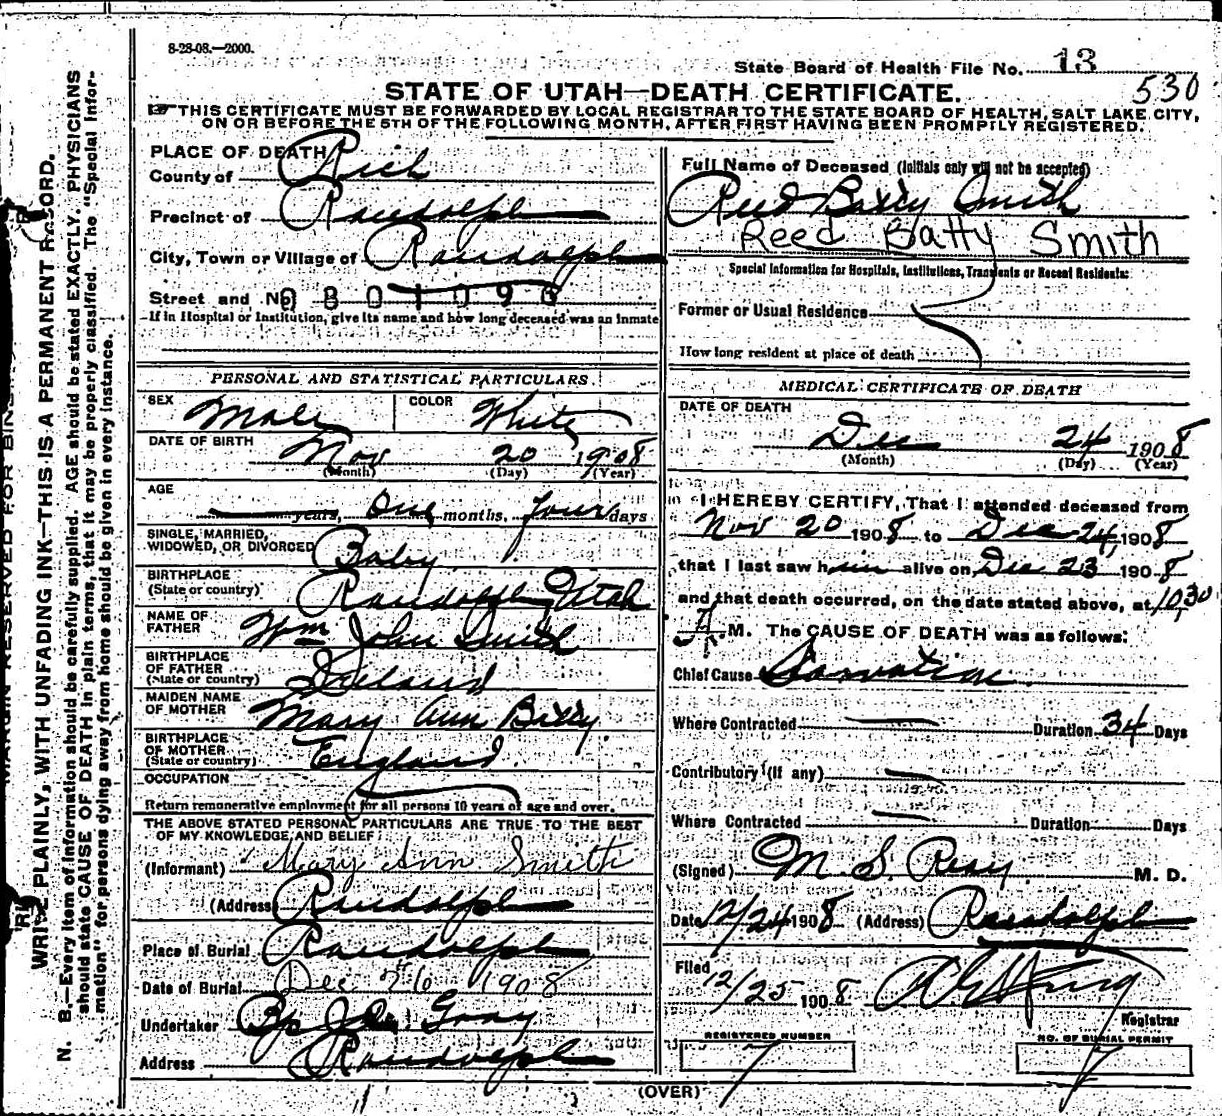 8-28-08.—2000.
State Board of Health File No. 13
530
STATE OF UTAH—DEATH CERTIFICATE.
THIS CERTIFICATE MUST BE FORWARDED BY LOCAL REGISTRAR TO THE STATE BOARD OF HEALTH, SALT LAKE CITY,
ON OR BEFORE THE 5TH OF THE FOLLOWING MONTH, AFTER FIRST HAVING BEEN PROMPTLY REGISTERED.
PLACE OF DEATH
County of Rich
Precinct of Randolph
City, Town or Village of Randolph
Street and No.
If in Hospital or Institution, give its name and how long deceased was an inmate
PERSONAL AND STATISTICAL PARTICULARS
SEX Male COLOR White
DATE OF BIRTH
Nov 20 1908
(Month) (Day) (Year)
AGE
years, One months, four days
SINGLE, MARRIED,
WIDOWED, OR DIVORCED Baby
BIRTHPLACE
(State or country) Randolph Utah
NAME OF
FATHER Wm John Smith
BIRTHPLACE
OF FATHER
(State or country) Ireland
MAIDEN NAME
OF MOTHER Mary Ann Batty
BIRTHPLACE
OF MOTHER
(State or country) England
OCCUPATION
Return remunerative employment for all persons 10 years of age and over.
THE ABOVE STATED PERSONAL PARTICULARS ARE TRUE TO THE BEST
OF MY KNOWLEDGE AND BELIEF
(Informant) Mary Ann Smith
(Address) Randolph
Place of Burial Randolph
Date of Burial Dec 26 1908
Undertaker Bp Jno. Gray
Address Randolph
Full Name of Deceased (Initials only will not be accepted)
Reed Batty Smith
Reed Batty Smith
Special Information for Hospitals, Institutions, Transients or Recent Residents:
Former or Usual Residence
How long resident at place of death
MEDICAL CERTIFICATE OF DEATH
DATE OF DEATH
Dec 24 1908
(Month) (Day) (Year)
I HEREBY CERTIFY, That I attended deceased from
Nov 20 1908 to Dec 24, 1908
that I last saw him alive on Dec 23, 1908
and that death occurred, on the date stated above, at 10,30
A. M. The CAUSE OF DEATH was as follows:
Chief Cause Starvation
Where Contracted Duration 34 Days
Contributory (if any)
Where Contracted Duration Days
(Signed) M. S. Reay M. D.
Date 12/24 1908 (Address) Randolph
Filed
12/25 1908
Registrar
REGISTERED NUMBER
7
NO. OF BURIAL PERMIT
7
(OVER)
MARGIN RESERVED FOR BINDING
WRITE PLAINLY, WITH UNFADING INK—THIS IS A PERMANENT RECORD.
N. B.—Every item of information should be carefully supplied. AGE should be stated EXACTLY. PHYSICIANS
should state CAUSE OF DEATH in plain terms, that it may be properly classified. The "Special Infor-
mation" for persons dying away from home should be given in every instance.